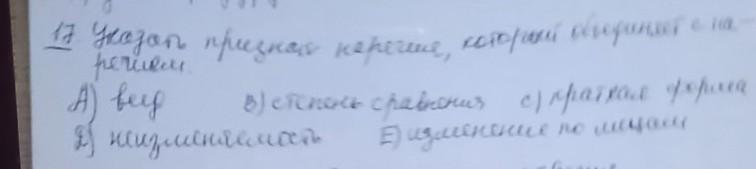 17. Указать признак наречие, который объединяет с на-
речием.
А) вид В) степень сравнения С) краткая форма
Д) неизменяемость Е) изменение по лицам